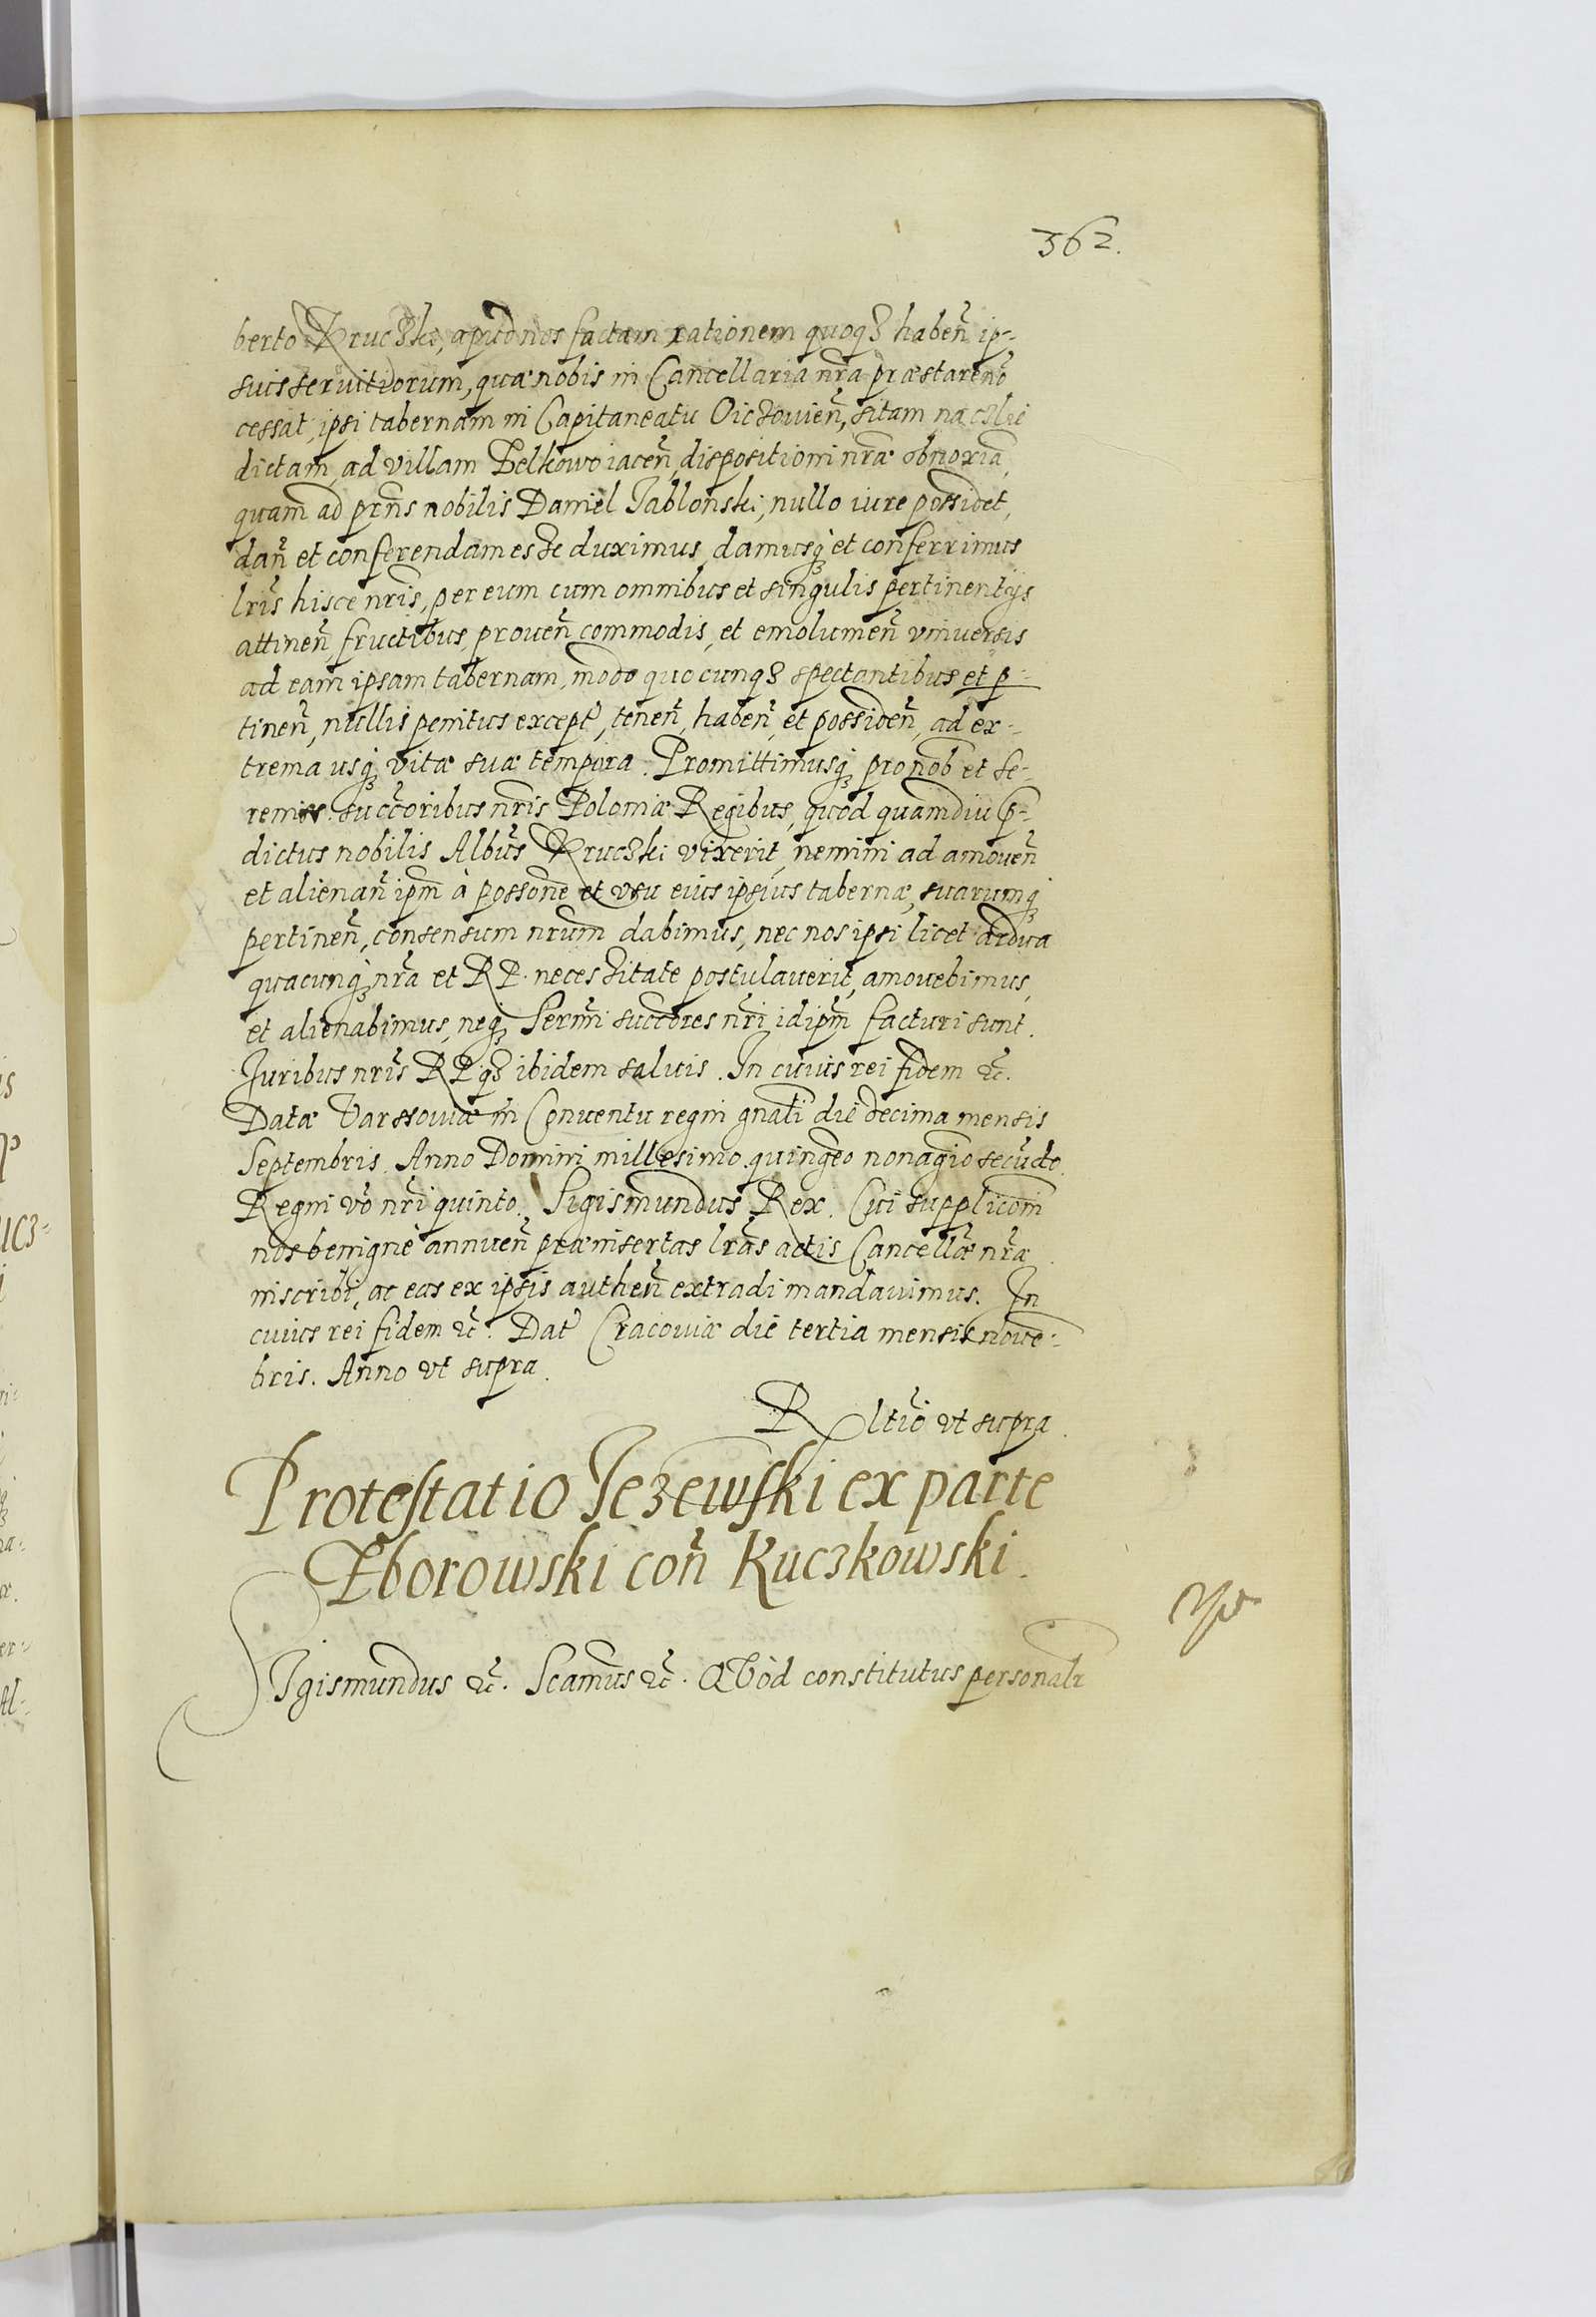 362.
berto Kruczki, apud nos factam rationem quoqȝ habeñ ip-
sius servitiorum, quæ nobis in Cancellaria nr̃a præstare nõ
cessat, ipsi tabernam in Capitaneatu Oicżovień, sitam
dictam, ad villam Bełkowo iaceñ, dispositioni nr̃æ obnoxiã,
quam ad pr̃ns nobilis Daniel Jablonski, nullo iure possidet,
dañ et conferendam esse duximus, damusqȝ et conferrimus
lr̃is hisce nr̃is, per eum cum omnibus et singulis pertinentijs
attineñ, fructibus, proveñ commodis, et emolumeñ vniversis
ad eam ipsam tabernam, modo quocunqȝ spectantibus et p-
tineñ, nullis penitus except̃, teneñ, habeñ, et possideñ, ad ex-
trema usqȝ vitæ suæ tempora. Promittimusqȝ pro nob et se-
reniss. succ̃oribus nr̃is Poloniæ Regibus, quod quamdiu p̃-
dictus nobilis Albũs Kruczki vixerit, nemini ad amoueñ
et alienañ ipm̃ à possoñe et vsu eius ipsius tabernæ, suarumqȝ
pertineñ, consensum nr̃um dabimus, nec nos ipsi licet ardua
quacunqȝ nr̃a et RP. necessitate postulaverit, amovebimus,
et alienabimus, neqȝ Serm̃i succ̃ores nr̃i idipm̃ facturi sunt.
Juribus nr̃is RP qȝ ibidem salvis. In cuius rei fidem &c̃.
Datæ Varssoviæ in Conventu regni gnãli die decima mensis
Septembris. Anno Domini millesimo quingeo nonagio secũdo.
Regni võ nr̃i quinto. Sigismundus Rex. Cui supplicom̃
nos benigne annueñ præinsertas lr̃as actis Cancellæ nr̃æ
inscribi, ac eas ex ipsis autheñ extradi mandavimus. In
cuius rei fidem &c̃. Dat̃ Cracoviæ die tertia mensis nove-
bris. Anno vt supra.
R ltiõ vt supra.
Protestatio Jeżewski ex parte
Zborowski coñ Kuczkowski.
SIgismundus &c̃. Scamũs &c̃. QVòd constitutus personalr